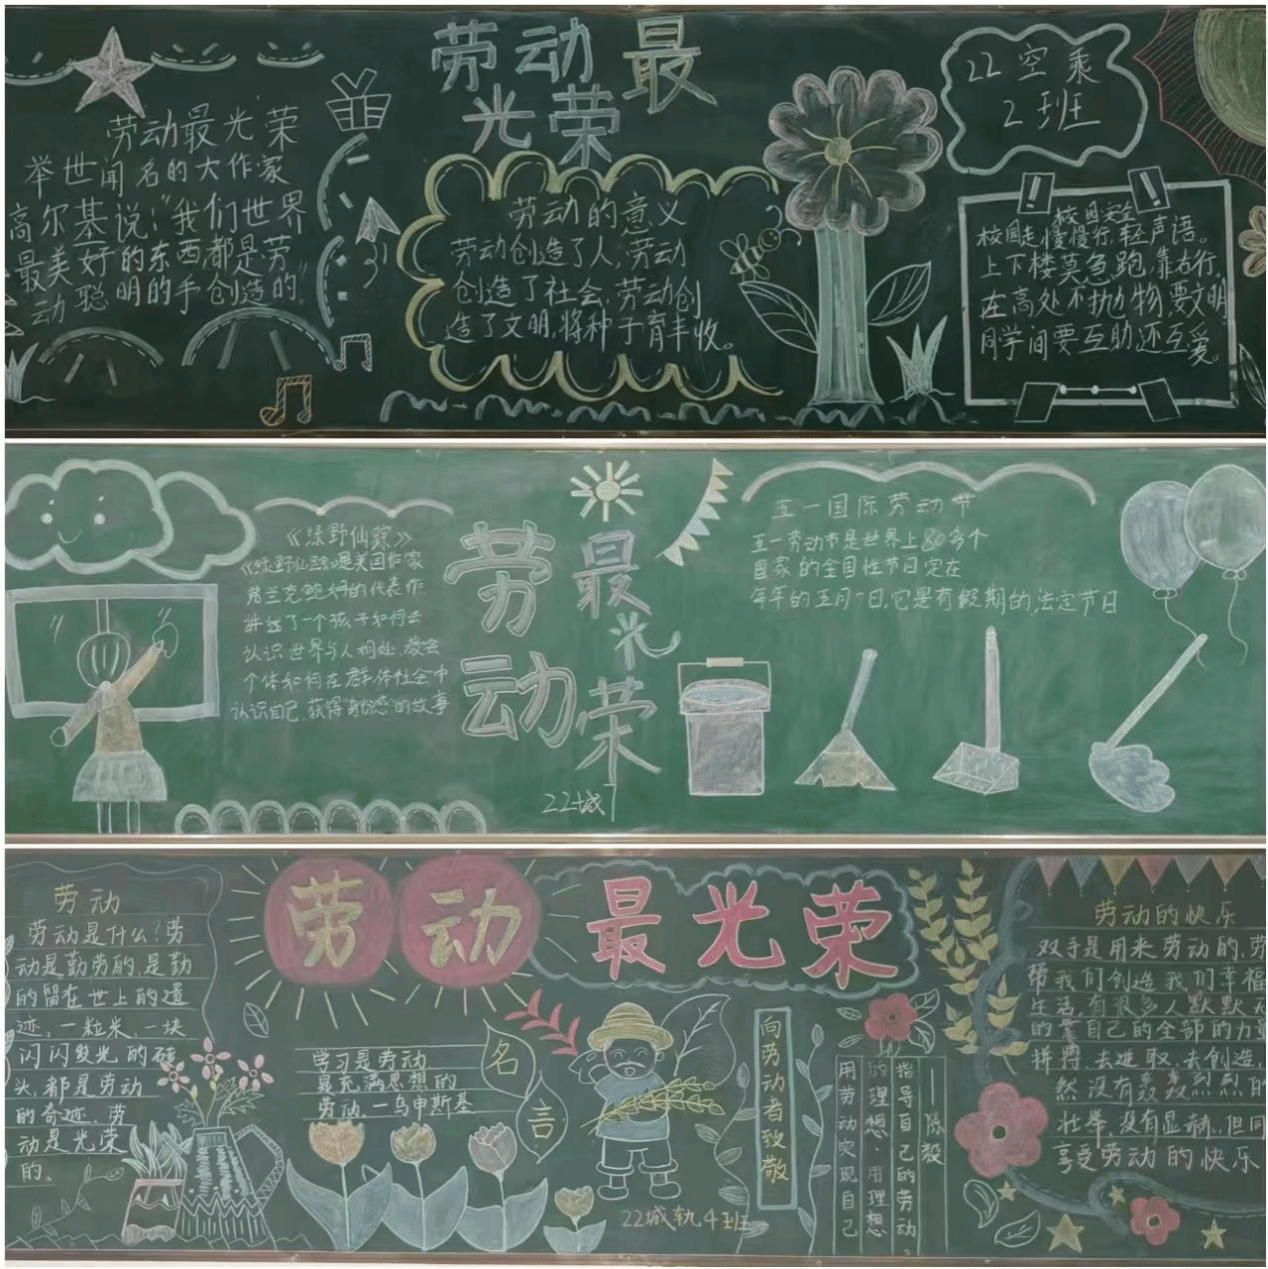 劳动最
光荣
劳动最光荣
举世闻名的大作家
高尔基说:"我们世界
最美好的东西,都是劳
动聪明的手创造的"
劳动的意义
劳动创造了人,劳动
创造了社会,劳动创
造了文明,将种子育丰收。
22空乘
2班
校园安全
校园走慢慢行,轻声语。
上下楼莫急跑,靠右行,
在高处不抛物,要文明
同学间要互助,还互爱。
《绿野仙踪》
《绿野仙踪》是美国作家
弗兰克鲍姆的代表作
讲述了一个孩子如何去
认识世界与人相处,教会
个体如何在群体社会中
认识自己,获得的故事
劳动
最光荣
22城
五一国际劳动节
五一劳动节是世界上80多个
国家的全国性节日定在
每年的五月一日,它是有假期的法定节日
劳动最光荣
劳动
劳动是什么?劳
动是勤劳的,是勤
的留在世上的遗
迹,一粒米,一块
闪闪发光的砖
头,都是劳动
的奇迹,劳
动是光荣
的。
学习是劳动
是充满思想的
劳动.一乌申斯基
名言
22城轨4班
向劳动者致敬
——陈毅
指导自己的劳动。
的理想,用理想
用劳动实现自己
劳动的快乐
双手是用来劳动的,劳
帮我们创造我们幸福
生活,有很多人默默无
的拿自己的全部的力量
拼搏,去进取,去创造,
然没有轰轰烈烈的
壮举,没有显赫,但同
享受劳动的快乐